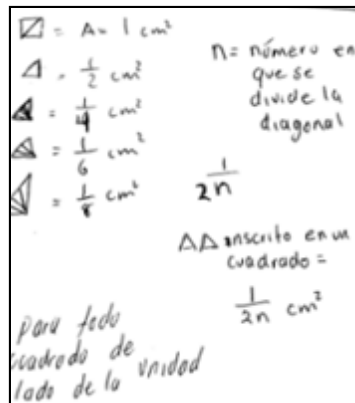 = A= 1 cm²
= 1/2 cm²
= 1/4 cm²
= 1/6 cm²
= 1/8 cm²
n= número en
que se
divide la
diagonal
1/2n
AΔ inscrito en un
cuadrado =
1/2n cm²
para todo
cuadrado de
lado de la unidad